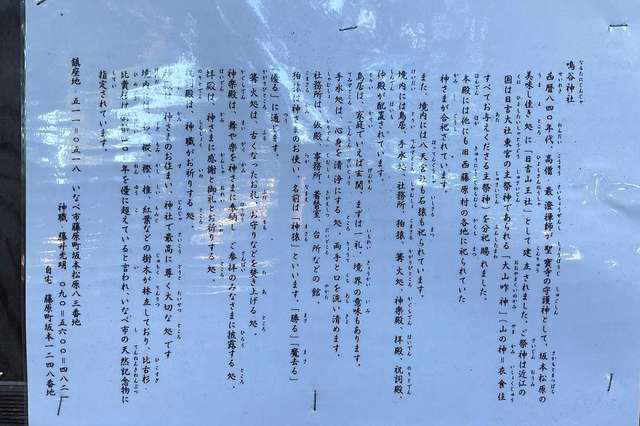 鳴谷神社
西暦八〇〇年代、高僧 最澄禅師が聖宝寺の守護神として、坂本松原の
美味し佳き処に「日吉山王社」として建立されました。ご祭神は近江の
国は日吉大社東宮の主祭神であられる「大山咋神」(山の神=衣食住
すべてお与えくださる主祭神)を分祀賜れました。
本殿には他にも旧西藤原村の各地に祀られていた
神さまが合祀されています。
また、境内には八天宮や石猿も祀られています。
境内には鳥居、手水処、社務所、狛猿、篝火処、神楽殿、拝殿、祝詞殿、
神殿が配置されています。
鳥居は、家庭でいえば玄関、まずは一礼、境界の意味もあります。
手水処は、心身を清浄にする処、両手と口を洗い清めます。
社務所は、仏殿、事務所、着替室、台所などの館、
狛猿は、神さまのお使い、名前は「神猿」といいます。「勝る」「魔去る」
優る」に通じます。
篝火処は、古くなったお札、お守りなどを焚き上げる処、
神楽殿は、舞や楽を神さまに奉納し、ご参拝のみなさまに披露する処、
拝殿は、神さまに感謝と御礼とお祈りする処、
殿は、神職がお祈りする処、
神さまのお住まい、神社で最高に尊く大切な処です
境内 樅、樫、椎、紅葉などの樹木が林立しており、比古杉、
比賣杉は 〇〇年を優に超えていると言われ、いなべ市の天然記念物に
指定されています。
鎮座地 五一一-〇五一八 いなべ市藤原町坂本松原八三番地
神職 藤井光明 〇九〇-五六〇〇-四八二一
自宅 藤原町坂本一二四八番地